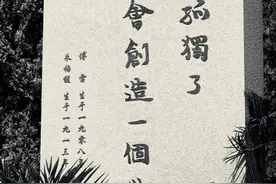 孤獨了
會創造一個
傅雷 生于一九零八年
朱梅馥 生于一九一三年